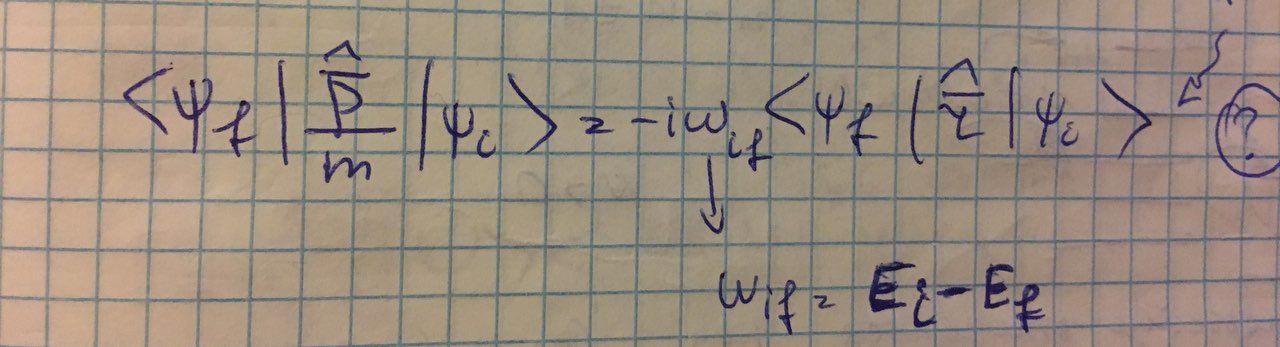 ⟨ψ_f| p̂/m |ψ_i⟩ = -iω_if ⟨ψ_f| r̂ |ψ_i⟩ ?
ω_if = E_i - E_f